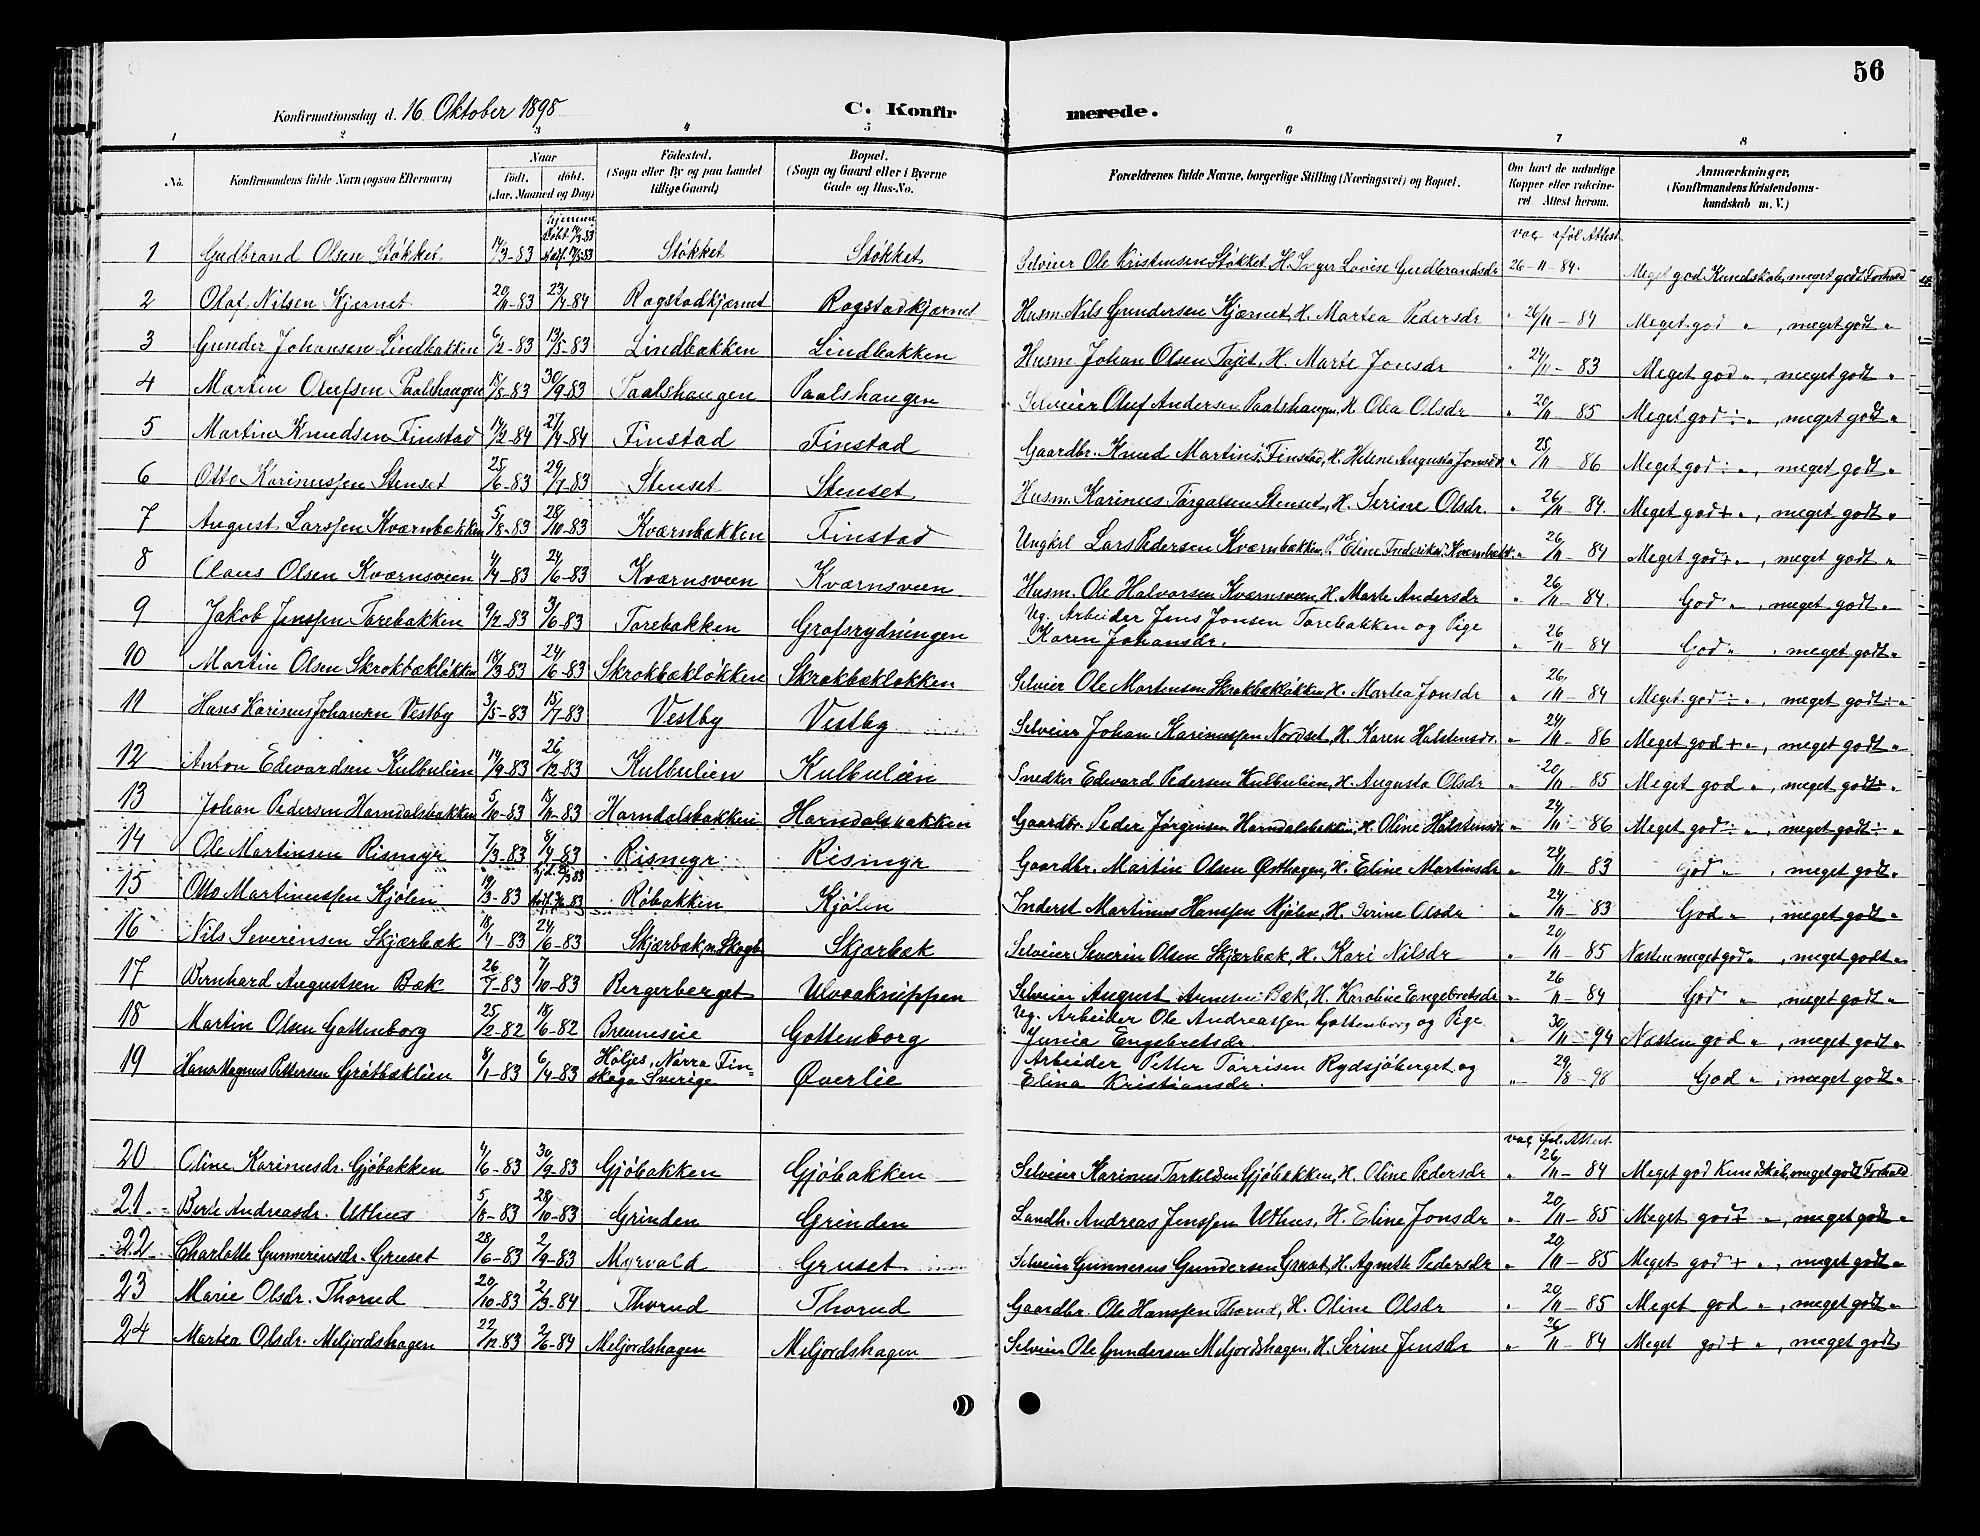 56
Konfirmationsdag d. 16 Oktober 1898 C. Konfirmerede.
1 2 3 4 5 6 7 8
No. Konfirmandens fulde Navn (ogsaa Efternavn) Naar født. døbt. (Aar, Maaned og Dag) Födested. (Sogn eller By og paa Landet tillige Gaard) Bopæl. (Sogn og Gaard eller i Byerne Gade og Hus-No. Forældrenes fulde Navne, borgerlige Stilling (Næringsvei) og Bopæl. Om havt de naturlige Kopper eller vakcineret Attest herom. Anmærkninger. (Konfirmandens Kristendomskundskab m. V.)
1 Gudbrand Olsen Støkket 14/3-83 Støkket Støkket Selveier Ole Kristensen Støkket, H. Inger Lovise Gudbrandsdr vac. iføl. Attest 26-11-84. Meget god Kundskab, meget godt Forhold
2 Olaf Nilsen Kjernet 20/11-83 23/4-84 Rogstadkjærnet Rogstadkjærnet Husm. Nils Gundersen Kjærnet, H. Martea Pedersdr " 26/11-84 Meget god " , meget godt "
3 Gunder Johansen Lindbakken 6/2-83 13/5-83 Lindbakken Lindbakken Husm. Johan Olsen H. Marte Jonsdr " 24/11-83 Meget god " , meget godt "
4 Martin Olufsen Paalshaugen 30/9-83 Paalshaugen Paalshaugen Selveier Oluf Andersen Paalshaugen, H. Olea Olsdr " 20/11-85 Meget god ÷ " , meget godt "
5 Martin Knudsen Finstad 14/2-84 27/4-84 Finstad Finstad Gaardbr. Knud Martins. Finstad, H. Helene Augusta Jonsdr " 25/11-86 Meget god ÷ " , meget godt "
6 Otto Karinussen Stenset 25/6-83 29/7-83 Stenset Stenset Husm. Karinus Torgalsen Stenset, H. Serine Olsdr. " 26/11-84. Meget god + " , meget godt "
7 August Larssen Kværnbækken 5/8-83 28/10-83 Kværnbækken Finstad Ungkrl Lars Pedersen Kværnbækken, Eline Frederiks. Kværnbækk. " 26/11-84 Meget god + " , meget godt "
8 Claus Olsen Kværnsveen 4/4-83 24/6-83 Kværnsveen Kværnsveen Husm. Ole Halvorsen Kværnsveen, H. Marte Andersdr " 26/11-84. God " , meget godt "
9 Jakob Jenssen Torebakken 9/2-83 3/6-83 Torebakken Grafsrydningen Ug. Arbeider Jens Jonsen Torebakken og Pige
Karen Johansdr. " 26/11-84 God " , meget godt "
10 Martin Olsen Skrokbækløkken 18/3-83 24/6-83 Skrokbækløkken Skrokbækløkken Selveier Ole Mortensen Skrokbækløkken, H. Martea Jonsdr " 26/11-84 Meget god ÷ " , meget godt ÷ "
11 Hans Karinus Johansen Vestby 3/5-83 15/7-83 Vestby Vestby Selveier Johan Karinussen Nordset, H. Karen Halstensdr. " 24/11-86 Meget god + " , meget godt "
12 Anton Edvardsen Kulbulien 14/9-83 26/12-83 Kulbulien Kulbulien Snedker Edvard Pedersen Kulbulien, H. Augusta Olsdr " 20/11-85 Meget god " , meget godt "
13 Johan Pedersen Horndalsbakken 5/10-83 18/11-83 Horndalsbakken Horndalsbakken Gaardbr. Peder Jørgensen Horndalsbakken, H. Oline Halstensdr " 24/11-86 Meget god ÷ " , meget godt ÷ "
14 Ole Martinsen Rismyr 7/3-83 8/4-83 Rismyr Rismyr Gaardbr. Martin Olsen Østhagen, H. Eline Martinsdr " 24/11-83 God " , meget godt "
15 Otto Martinussen Kjølen 14/3-83 Røbakken Kjølen Inderst Martinus Hanssen Kjølen, H. Serine Olsdr " 24/11-83 God " , meget godt "
16 Nils Severinsen Skjærbæk 18/4-83 24/6-83 Skjærbæk, n. Skogb. Skjærbæk Selveier Severin Olsen Skjærbæk, H. Kari Nilsdr " 20/11-85 Næsten meget god " , meget godt "
17 Bernhard Augustsen Bæk 26/7-83 7/10-83 Bergerberget Ulvaaknippen Selveier August Arnesen Bæk, H. Karoline Engebretsdr " 26/11-84 God " , meget godt "
18 Martin Olsen Gottenborg 25/2-82 18/6-82 Brennesie Gottenborg Ug. Arbeider Ole Andreassen Gottenborg og Pige
Junia Engebretsdr " 30/11-94 Næsten god " , meget godt "
19 Hans Magnus Pettersen Grøtbæklien 8/1-83 6/4-83 Höljes, Norra Finskoga Sverige Øverlie Arbeider Petter Torrisen Rydsjøberget og
Elina Kristiansdr. " 29/8-98 God " , meget godt "
20 Oline Karinusdr. Gjøbakken 4/6-83 30/9-83 Gjøbakken Gjøbakken Selveier Karinus Torkeldsen Gjøbakken, H. Oline Pedersdr vac. iføl. Attest " 26/11-84 Meget god Kundskab, meget godt Forhold
21 Berte Andreasdr. Uthus 5/8-83 28/10-83 Grinden Grinden Landh. Andreas Jenssen Uthus, H. Eline Jonsdr " 20/11-85 Meget god + " , meget godt "
22 Charlotte Gunnerinsdr. Gruset 28/6-83 2/9-83 Myrvold Gruset Selveier Gunnerus Gundersen Gruset, H. Agnethe Pedersdr " 20/11-85 Meget god + " , meget godt "
23 Marie Olsdr. Thorud 20/10-83 2/3-84 Thorud Thorud Gaardbr. Ole Hanssen Thorud, H. Oline Olsdr " 20/11-85 Meget god " , meget godt "
24 Martea Olsdr. Meljordshagen 22/12-83 2/6-84 Meljordshagen Meljordshagen Selveier Ole Gundersen Meljordshagen, H. Serine Jensdr " 26/11-84 Meget god + " , meget godt